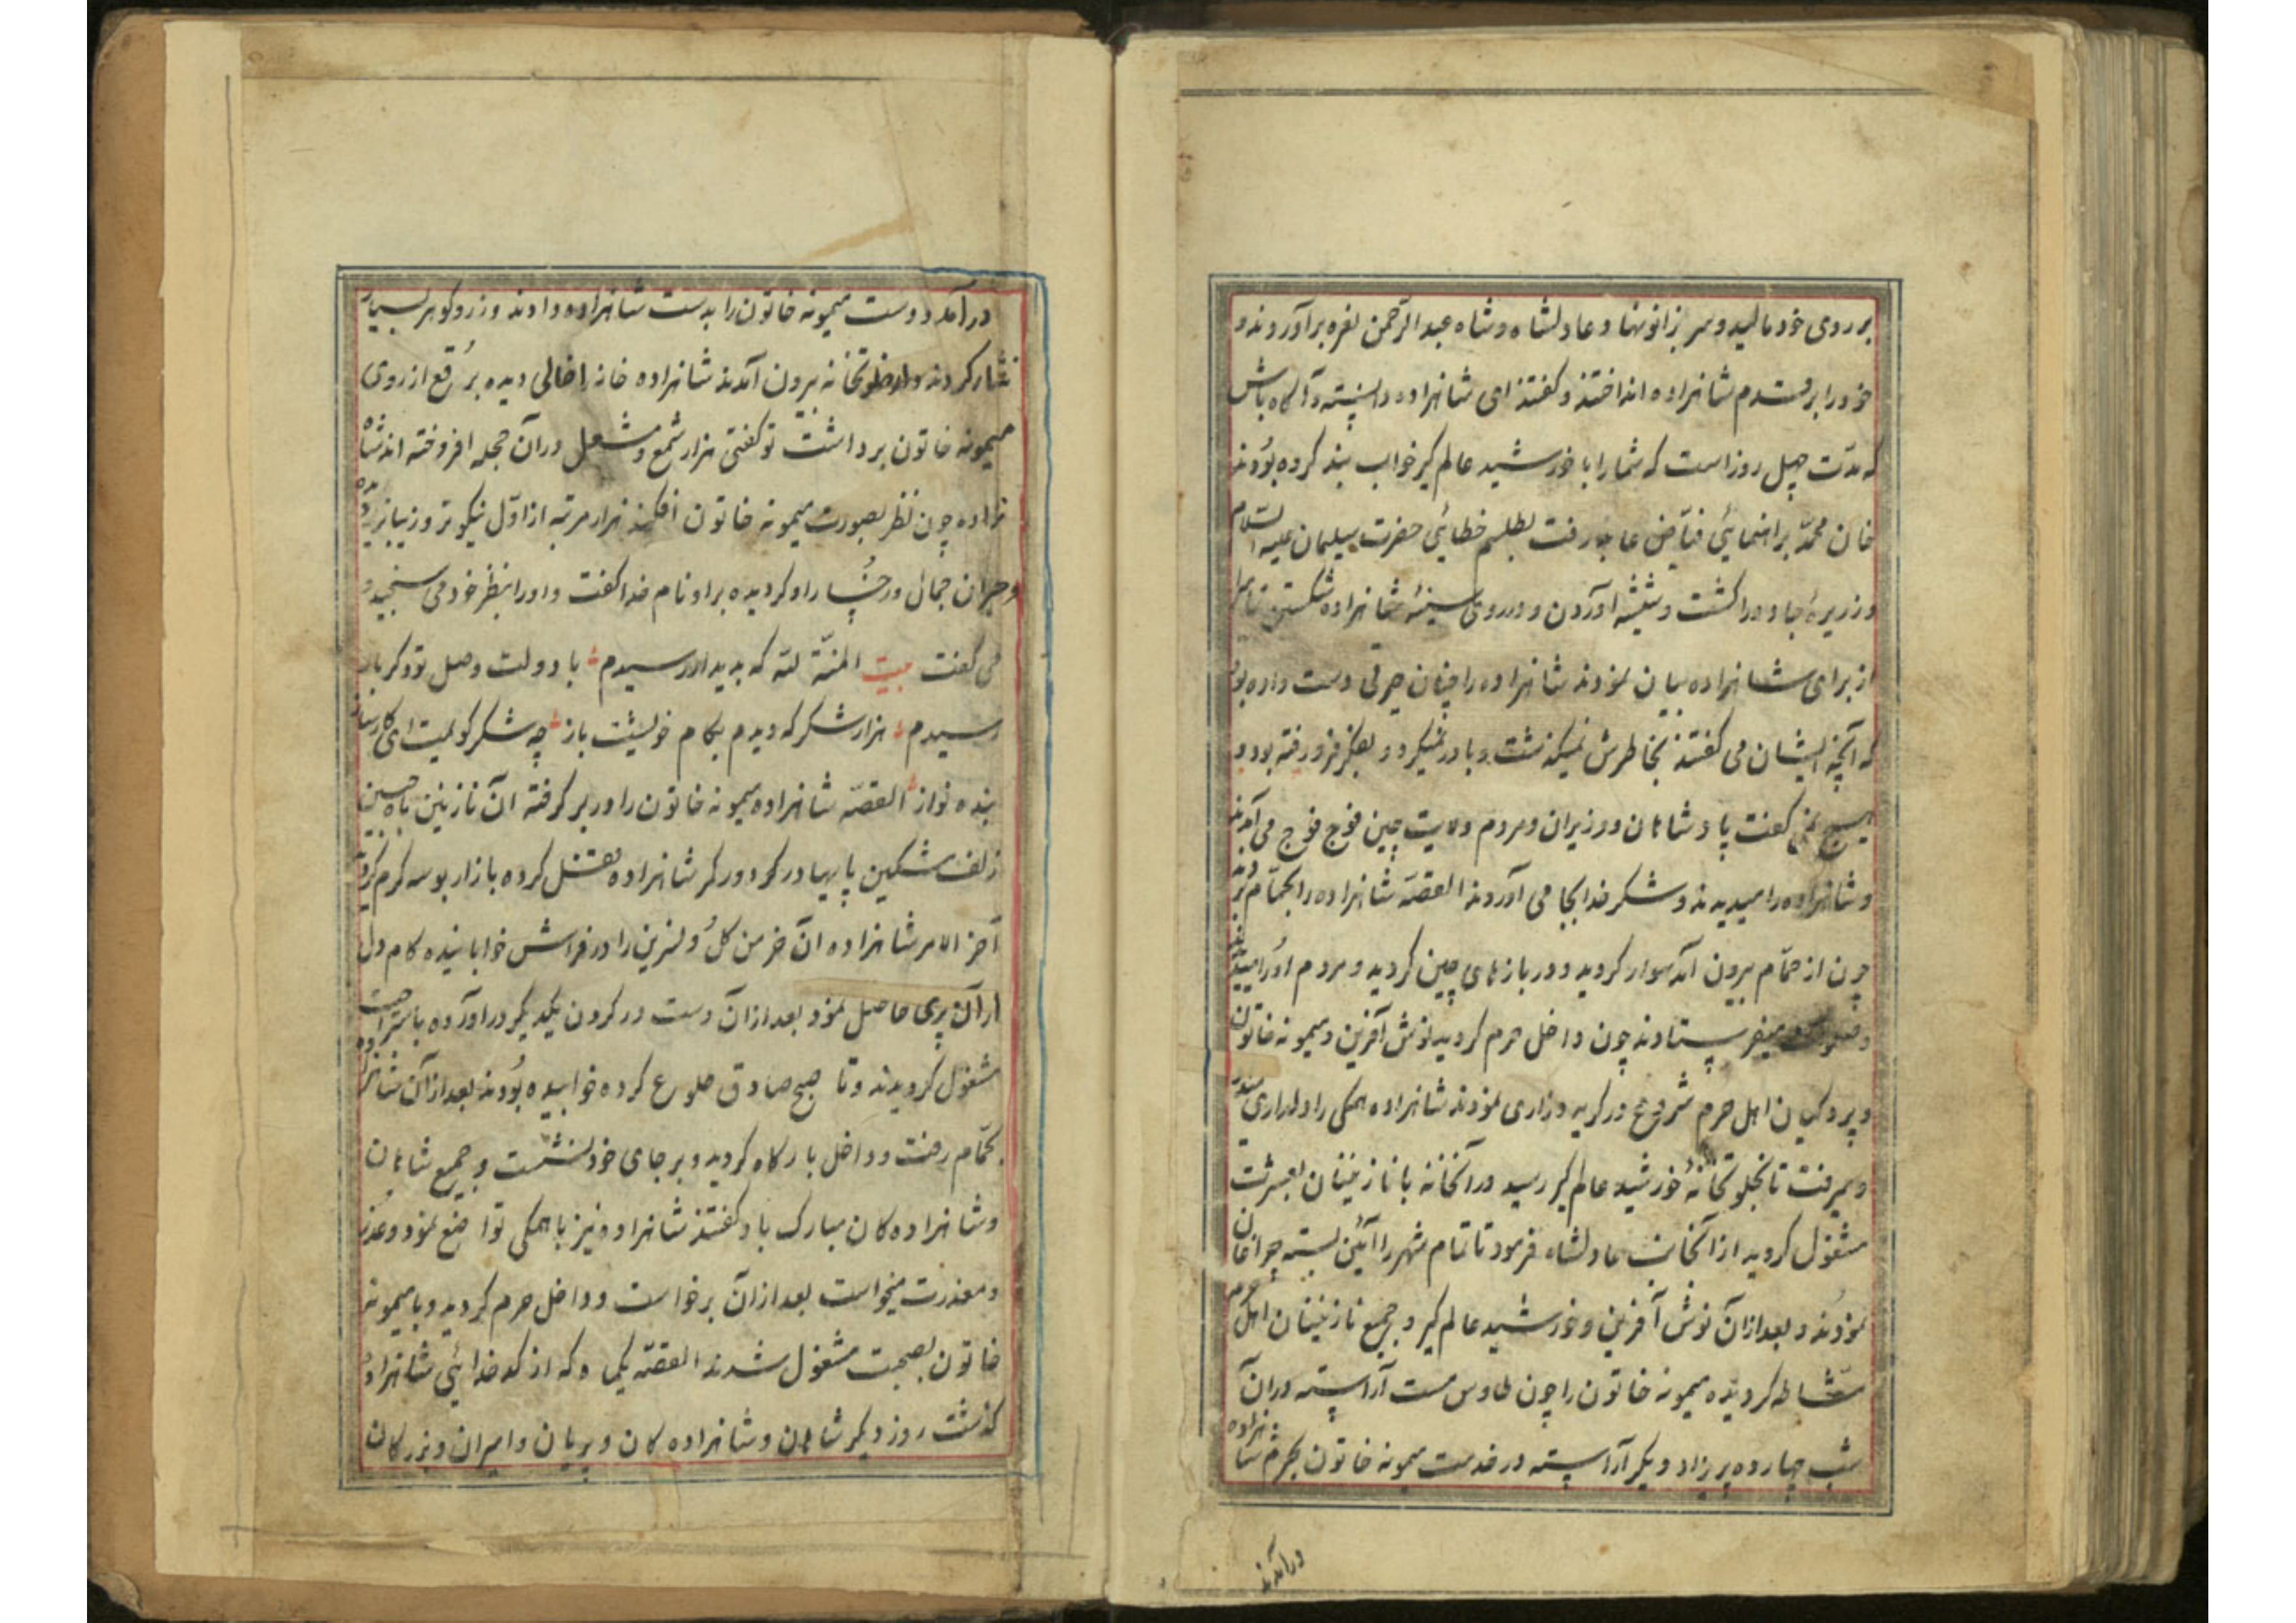 بر روی خود مالید و سر بزانو نهاد و عادلشاه و شاه عبد الرحمن نعره برآوردند و
خود را بر قدم شاهزاده انداختند و کفتند ای شاهزاده دانسته و آکاه باش
که مدّت چهل روز است که شما را با خورشید عالم کیر خواب بند کرده بودند
خان محمّد براهنمایی فیّاض عابد رفت بطلسم خطایی حضرت سلیمان علیه السلام
و زریره جادو را کشت و شیشه آوردن و در روی سینهٔ شاهزاده شکستن تمام
از برای شاهزاده بیان نمودند شاهزاده را چنان حیرتی دست داده بود
که آنچه ایشان می کفتند بخاطرش نمیکذشت و باور نمیکرد و بفکر فرو رفته بود و
هیچ نمی کفت پادشاهان و وزیران و مردم ولایت چین فوج فوج می آمدند
و شاهزاده را میدیدند و شکر خدا بجا می آوردند القصّه شاهزاده را بحمّام بردند
چون از حمّام بیرون آمد سوار کردید و در بازارهای چین کردید و مردم او را میدیدند
و میفرستادند چون داخل حرم کردید نوش آفرین و میمونه خاتون
و پردکیان اهل حرم شروع در کریه و زاری نمودند شاهزاده همکی را دلداری میداد
و میرفت تا بخلوتخانهٔ خورشید عالم کیر رسید در آنخانه با نازنینان بعشرت
مشغول کردید از آنجانب عادلشاه فرمود تا تمام شهر را آئین بسته چراغان
نمودند و بعد از آن نوش آفرین و خورشید عالم کیر و جمیع نازنینان اهل حرم
مشّاطه کردیده میمونه خاتون را چون طاوس مست آراسته در آن
شب چهارده پریزاد دیکر آراسته در خدمت میمونه خاتون بحرم شاهزاده
درآمدند
درآمد و دست میمونه خاتون را بدست شاهزاده دادند و زر و کوهر بسیار
نثار کردند و از خلوتخانه بیرون آمدند شاهزاده خانه را خالی دیده برقع از روی
میمونه خاتون برداشت تو کفتی هزار شمع و مشعل در آن حجله افروخته اند شاه
زاده چون نظر بصورت میمونه خاتون افکند هزار مرتبه از اوّل نیکوتر و زیباتر دیده
و حیران جمال و رخسار او کردیده بر او نام خدا کفت و او را بنظر خود می سنجید و
می کفت بیت المنّة لله که بدیدار رسیدم با دولت وصل تو دکر بار
رسیدم هزار شکر که دیدم بکام خویشت باز چه شکر کویمت ای کارساز
بنده نواز القصّه شاهزاده میمونه خاتون را در بر کرفته آن نازنین ماه جبین
زلف مشکین پایها در کرد و در کمر شاهزاده قفل کرده بازار بوسه کرم کرد
آخر الامر شاهزاده آن خرمن کل و نسرین را در فراش خوابانیده کام دل
از آن پری حاصل نمود بعد از آن دست در کردن یکدیکر درآورده باستراحت
مشغول کردیدند و تا صبح صادق طلوع کرده خوابیده بودند بعد از آن شاهزاده
بحمّام رفت و داخل بارکاه کردید و بر جای خود نشست و جمیع شاهان
و شاهزاده کان مبارک باد کفتند شاهزاده نیز با همکی تواضع نمود و عذر
و معذرت میخواست بعد از آن برخواست و داخل حرم کردید و با میمونه
خاتون بصحبت مشغول شدند القصّه یکماه که از کدخدایی شاهزاده
کذشت روز دیکر شاهان و شاهزاده کان و پریان و امیران و بزرکان